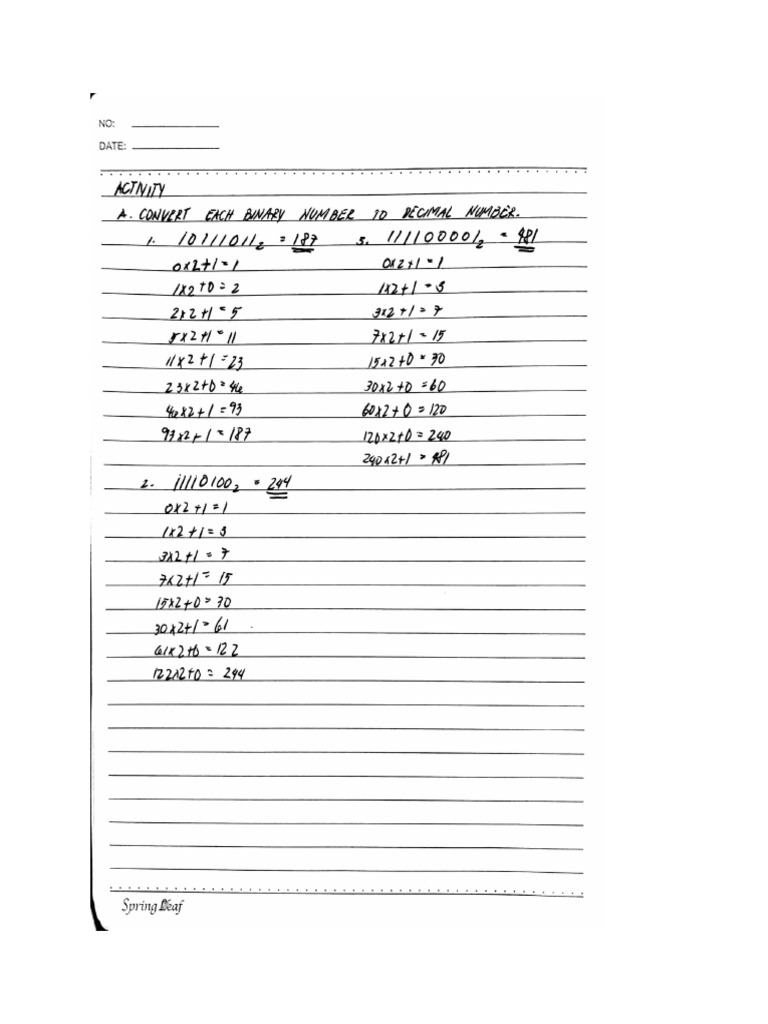 NO:
DATE:
ACTIVITY
A. CONVERT EACH BINARY NUMBER TO DECIMAL NUMBER.
1. 10111011₂ = 187
0x2+1=1
1x2+0=2
2x2+1=5
5x2+1=11
11x2+1=23
23x2+0=46
46x2+1=93
93x2+1=187
2. 11110100₂ = 244
0x2+1=1
1x2+1=3
3x2+1=7
7x2+1=15
15x2+0=30
30x2+1=61
61x2+0=122
122x2+0=244
3. 111100001₂ = 481
0x2+1=1
1x2+1=3
3x2+1=7
7x2+1=15
15x2+0=30
30x2+0=60
60x2+0=120
120x2+0=240
240x2+1=481
Spring Leaf